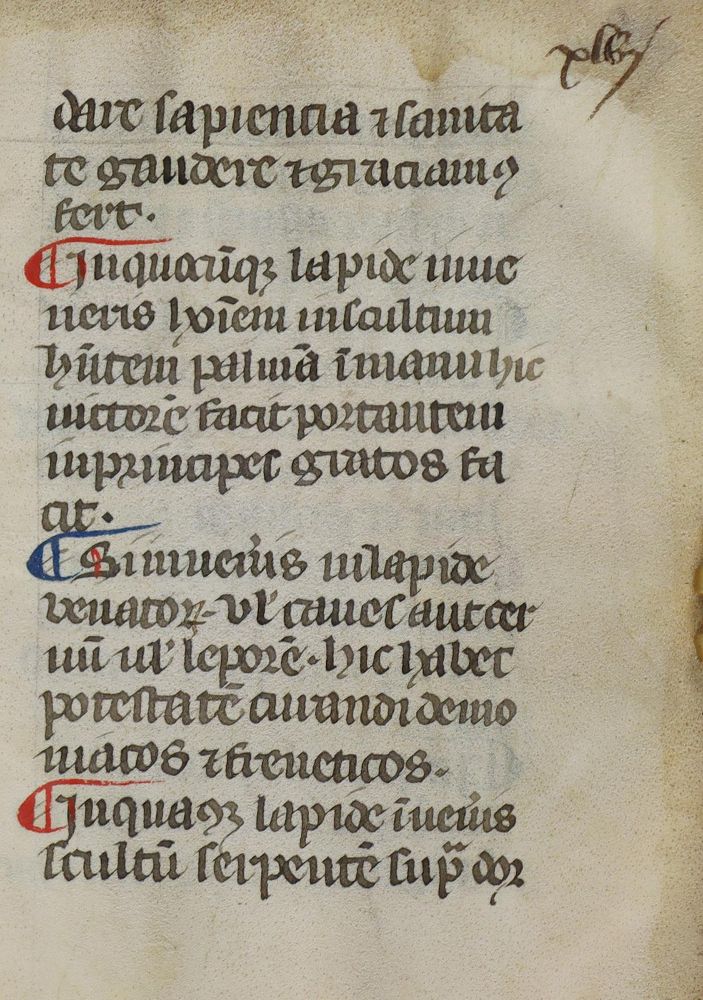 dare sapiencia ⁊ sanita
te gaudere ⁊ graciam 
fert.
¶ In quocūqꝫ lapide inue
neris hoīem insculptum
hñtem palmā ī manu hic
uictorē facit portantem
in principes gratos fa
cit.
¶ Si inueńis in lapide
venatorē vł canes aut cer
uū uł leporē. hic habet
potestatē curandi demo
niacos ⁊ freneticos.
¶ In quocūqꝫ lapide īueńis
scultū serpentē supra dor